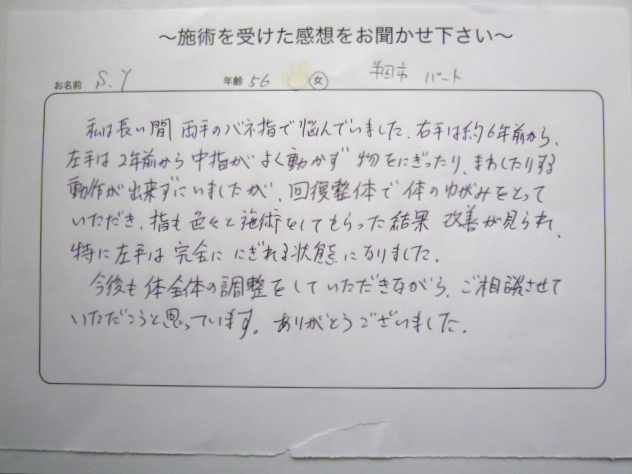 ～施術を受けた感想をお聞かせ下さい～
お名前 S.Y 年齢 56 女 半田市 パート
私は長い間 両手のバネ指で悩んでいました。右手は約6年前から、
左手は2年前から中指がよく動かず 物をにぎったり、まわしたりする
動作が出来ずにいましたが、回復整体で体のゆがみをとって
いただき、指も色々と施術をしてもらった結果 改善が見られ、
特に左手は完全ににぎれる状態になりました。
今後も体全体の調整をしていただきながら、ご相談させて
いただこうと思っています。ありがとうございました。